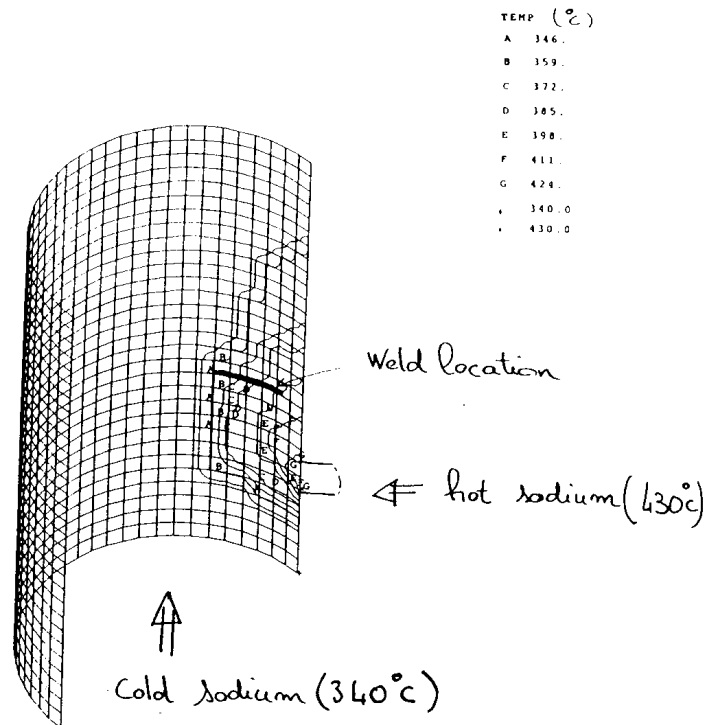 TEMP (°C)
A 346.
B 359.
C 372.
D 385.
E 398.
F 411.
G 424.
340.0
430.0
Weld location
hot sodium (430°C)
Cold sodium (340°C)